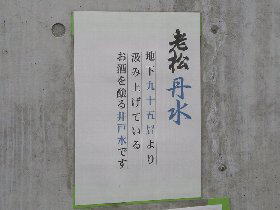 老松丹水
地下九十五尺より
汲み上げている
お酒を醸る井戸水です